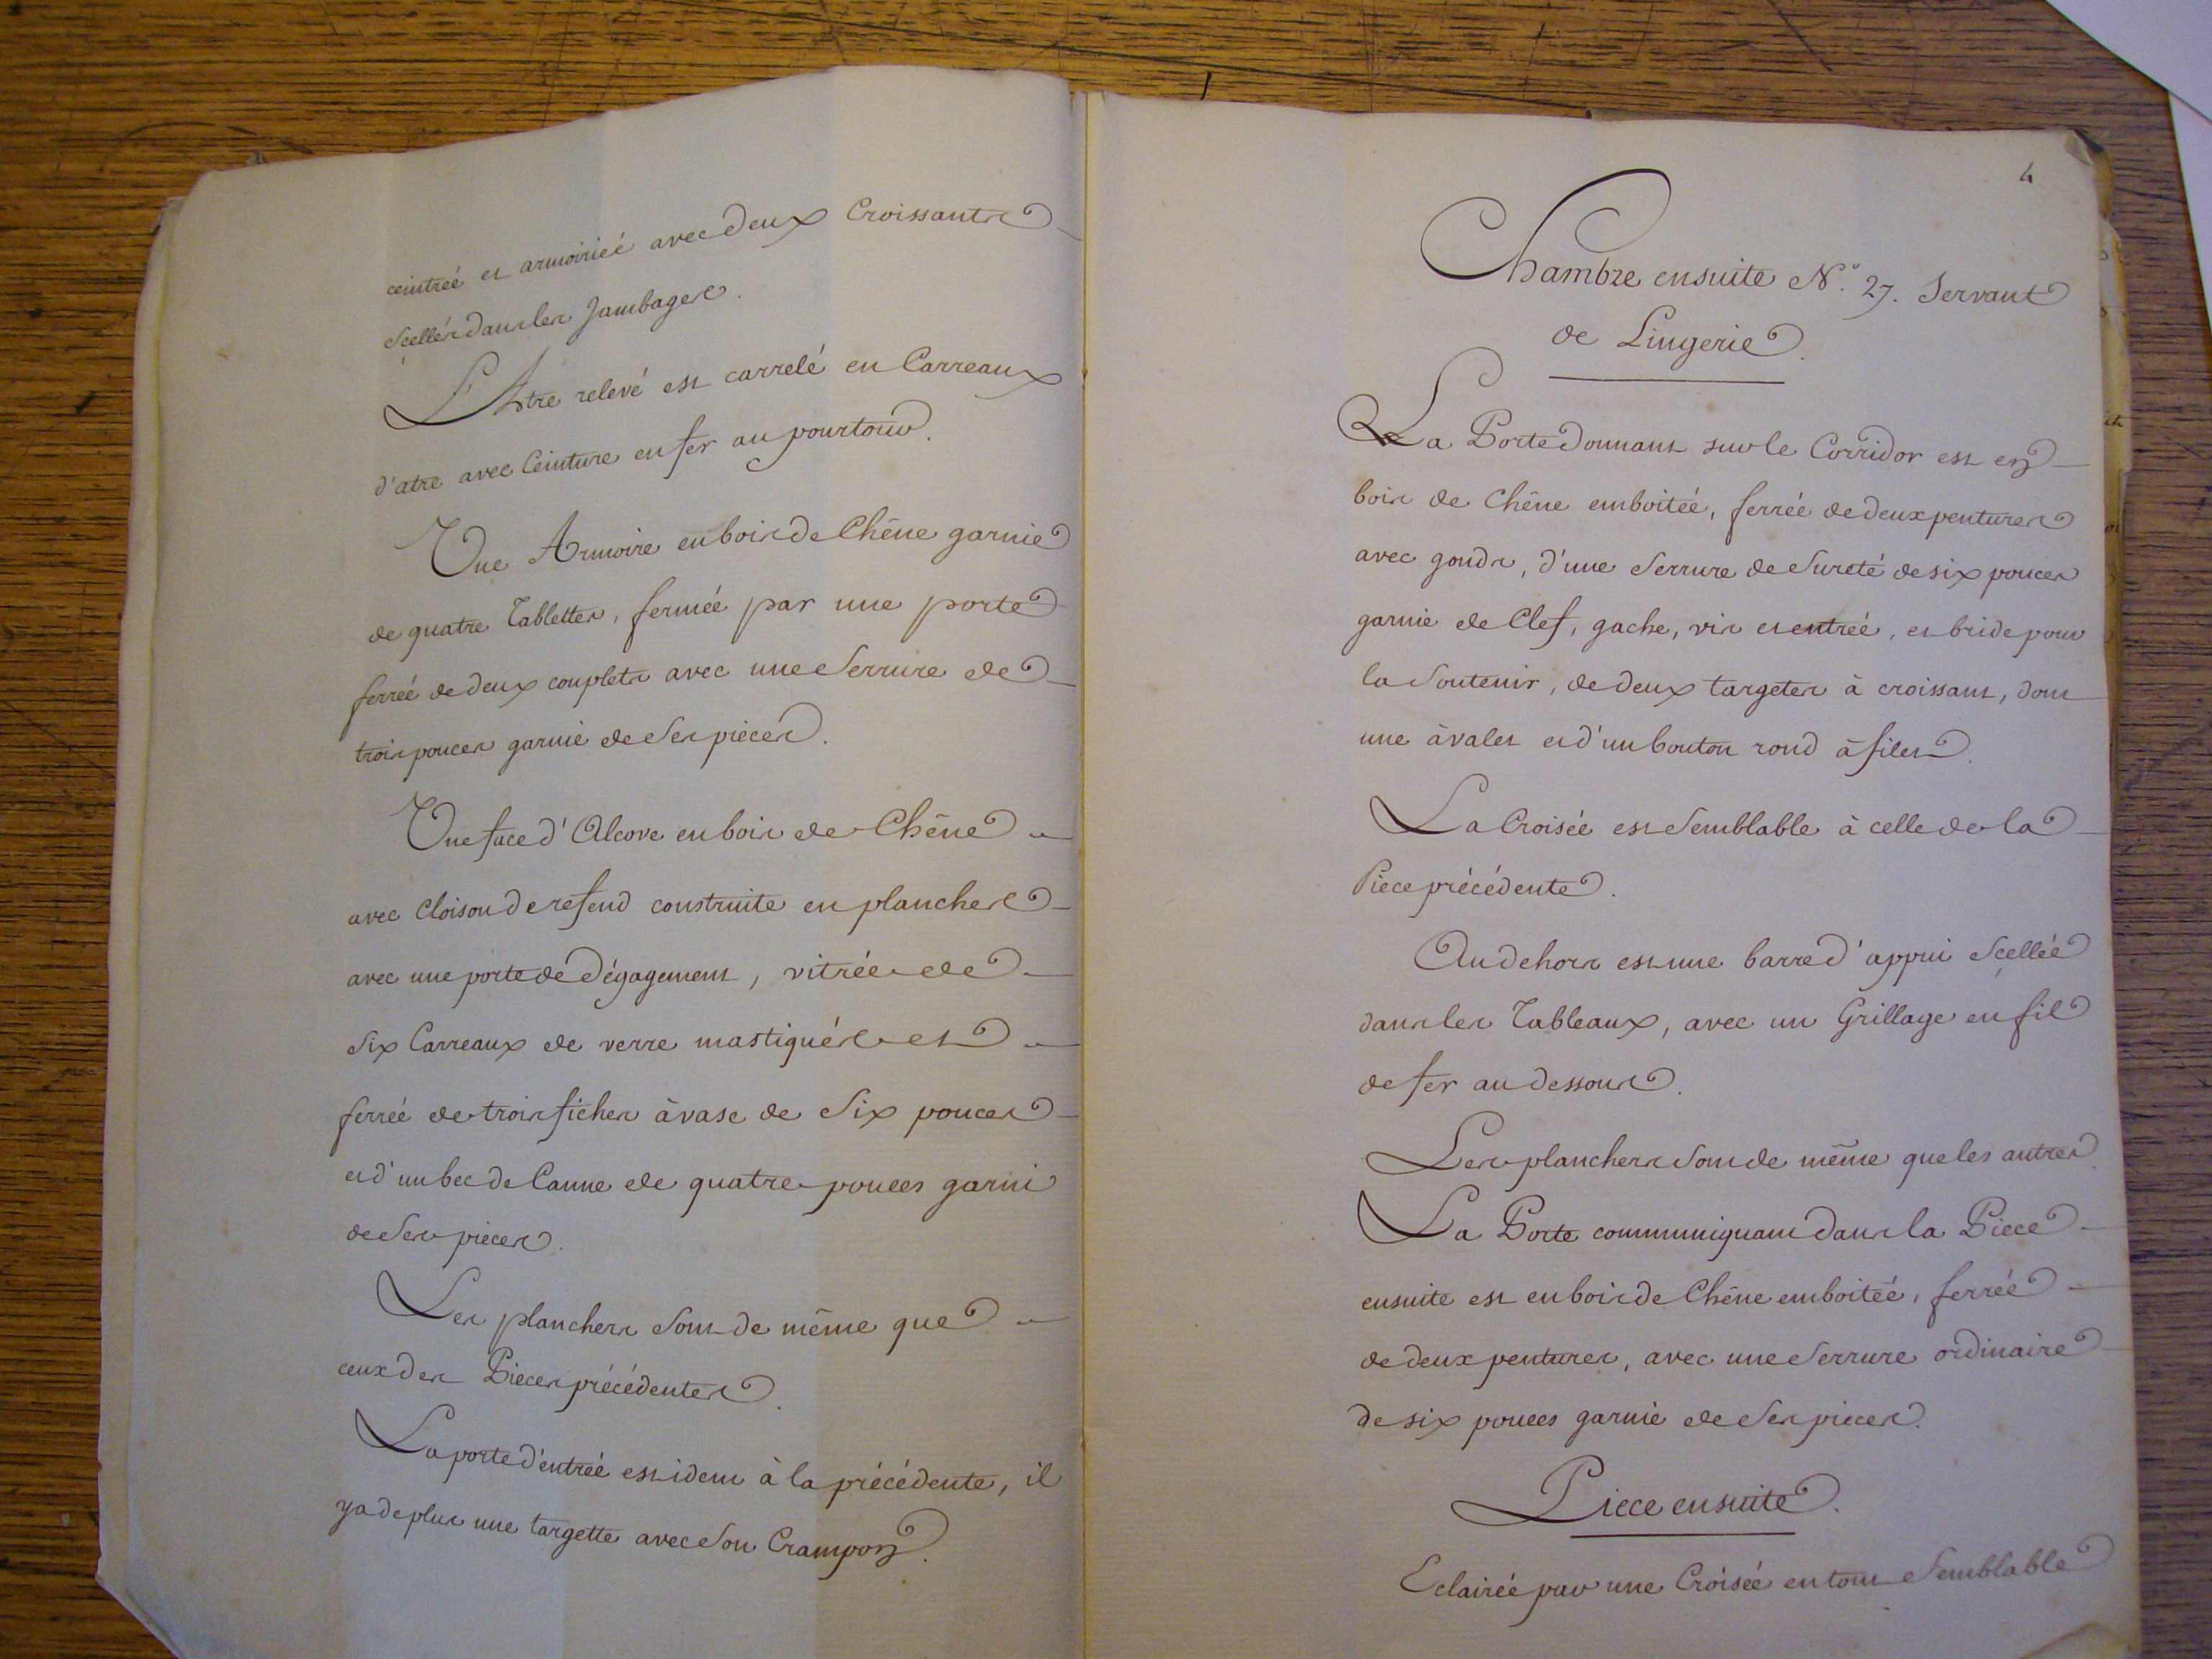 ceintrée et armoiriée avec deux Croissants
Scellés dans les Jambages.
L'Atre relevé est carrelé en Carreaux
d'atre avec Ceinture en fer au pourtour.
Une Armoire en bois de Chêne garnie
de quatre Tablettes, fermée par une porte
ferrée de deux couplets avec une Serrure de
trois pouces garnie de Ses pieces.
Une face d'Alcove en bois de Chêne
avec Cloison de refend construite en planches
avec une porte de Dégagement, vitrée de
Six Carreaux de verre mastiqués et
ferrée de trois fiches à vase de Six pouces
et d'un bec de Canne de quatre pouces garni
de Ses pieces.
Les planchers Sont de même que
ceux des Pieces précédentes.
La porte d'entrée est idem à la précédente, il
y a de plus une targette avec Son Crampon.
4
Chambre ensuite N.º 27. Servant
de Lingerie.
La Porte Donnant sur le Corridor est en
bois de Chêne emboitée, ferrée de deux pentures
avec gonds, d'une Serrure de Sureté de six pouces
garnie de Clef, gache, vis et entrée, et bride pour
la Soutenir, de deux targetes à croissant, dont
une à valet et d'un bouton rond à filet.
La Croisée est Semblable à celle de la
Piece précédente.
Au dehors est une barre d'appui Scellée
dans les Tableaux, avec un Grillage en fil
de fer au dessous.
Les planchers Sont de même que les autres
La Porte communiquant dans la Piece
ensuite est en bois de Chêne emboitée, ferrée
de deux pentures, avec une Serrure ordinaire
de six pouces garnie de Ses pieces.
Piece ensuite.
Eclairée par une Croisée en tout Semblable